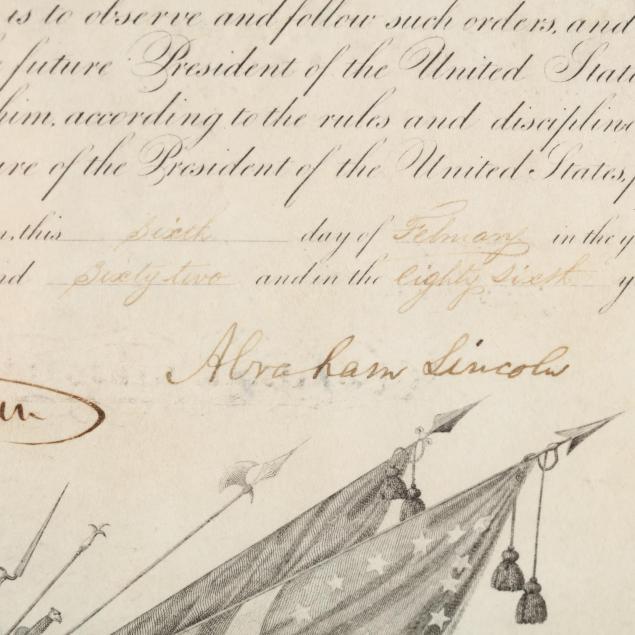 is to observe and follow such orders, and
future President of the United State
him, according to the rules and discipline
ure of the President of the United States,
this sixth day of February in the y
nd Sixty two and in the eighty sixth y
Abraham Lincoln